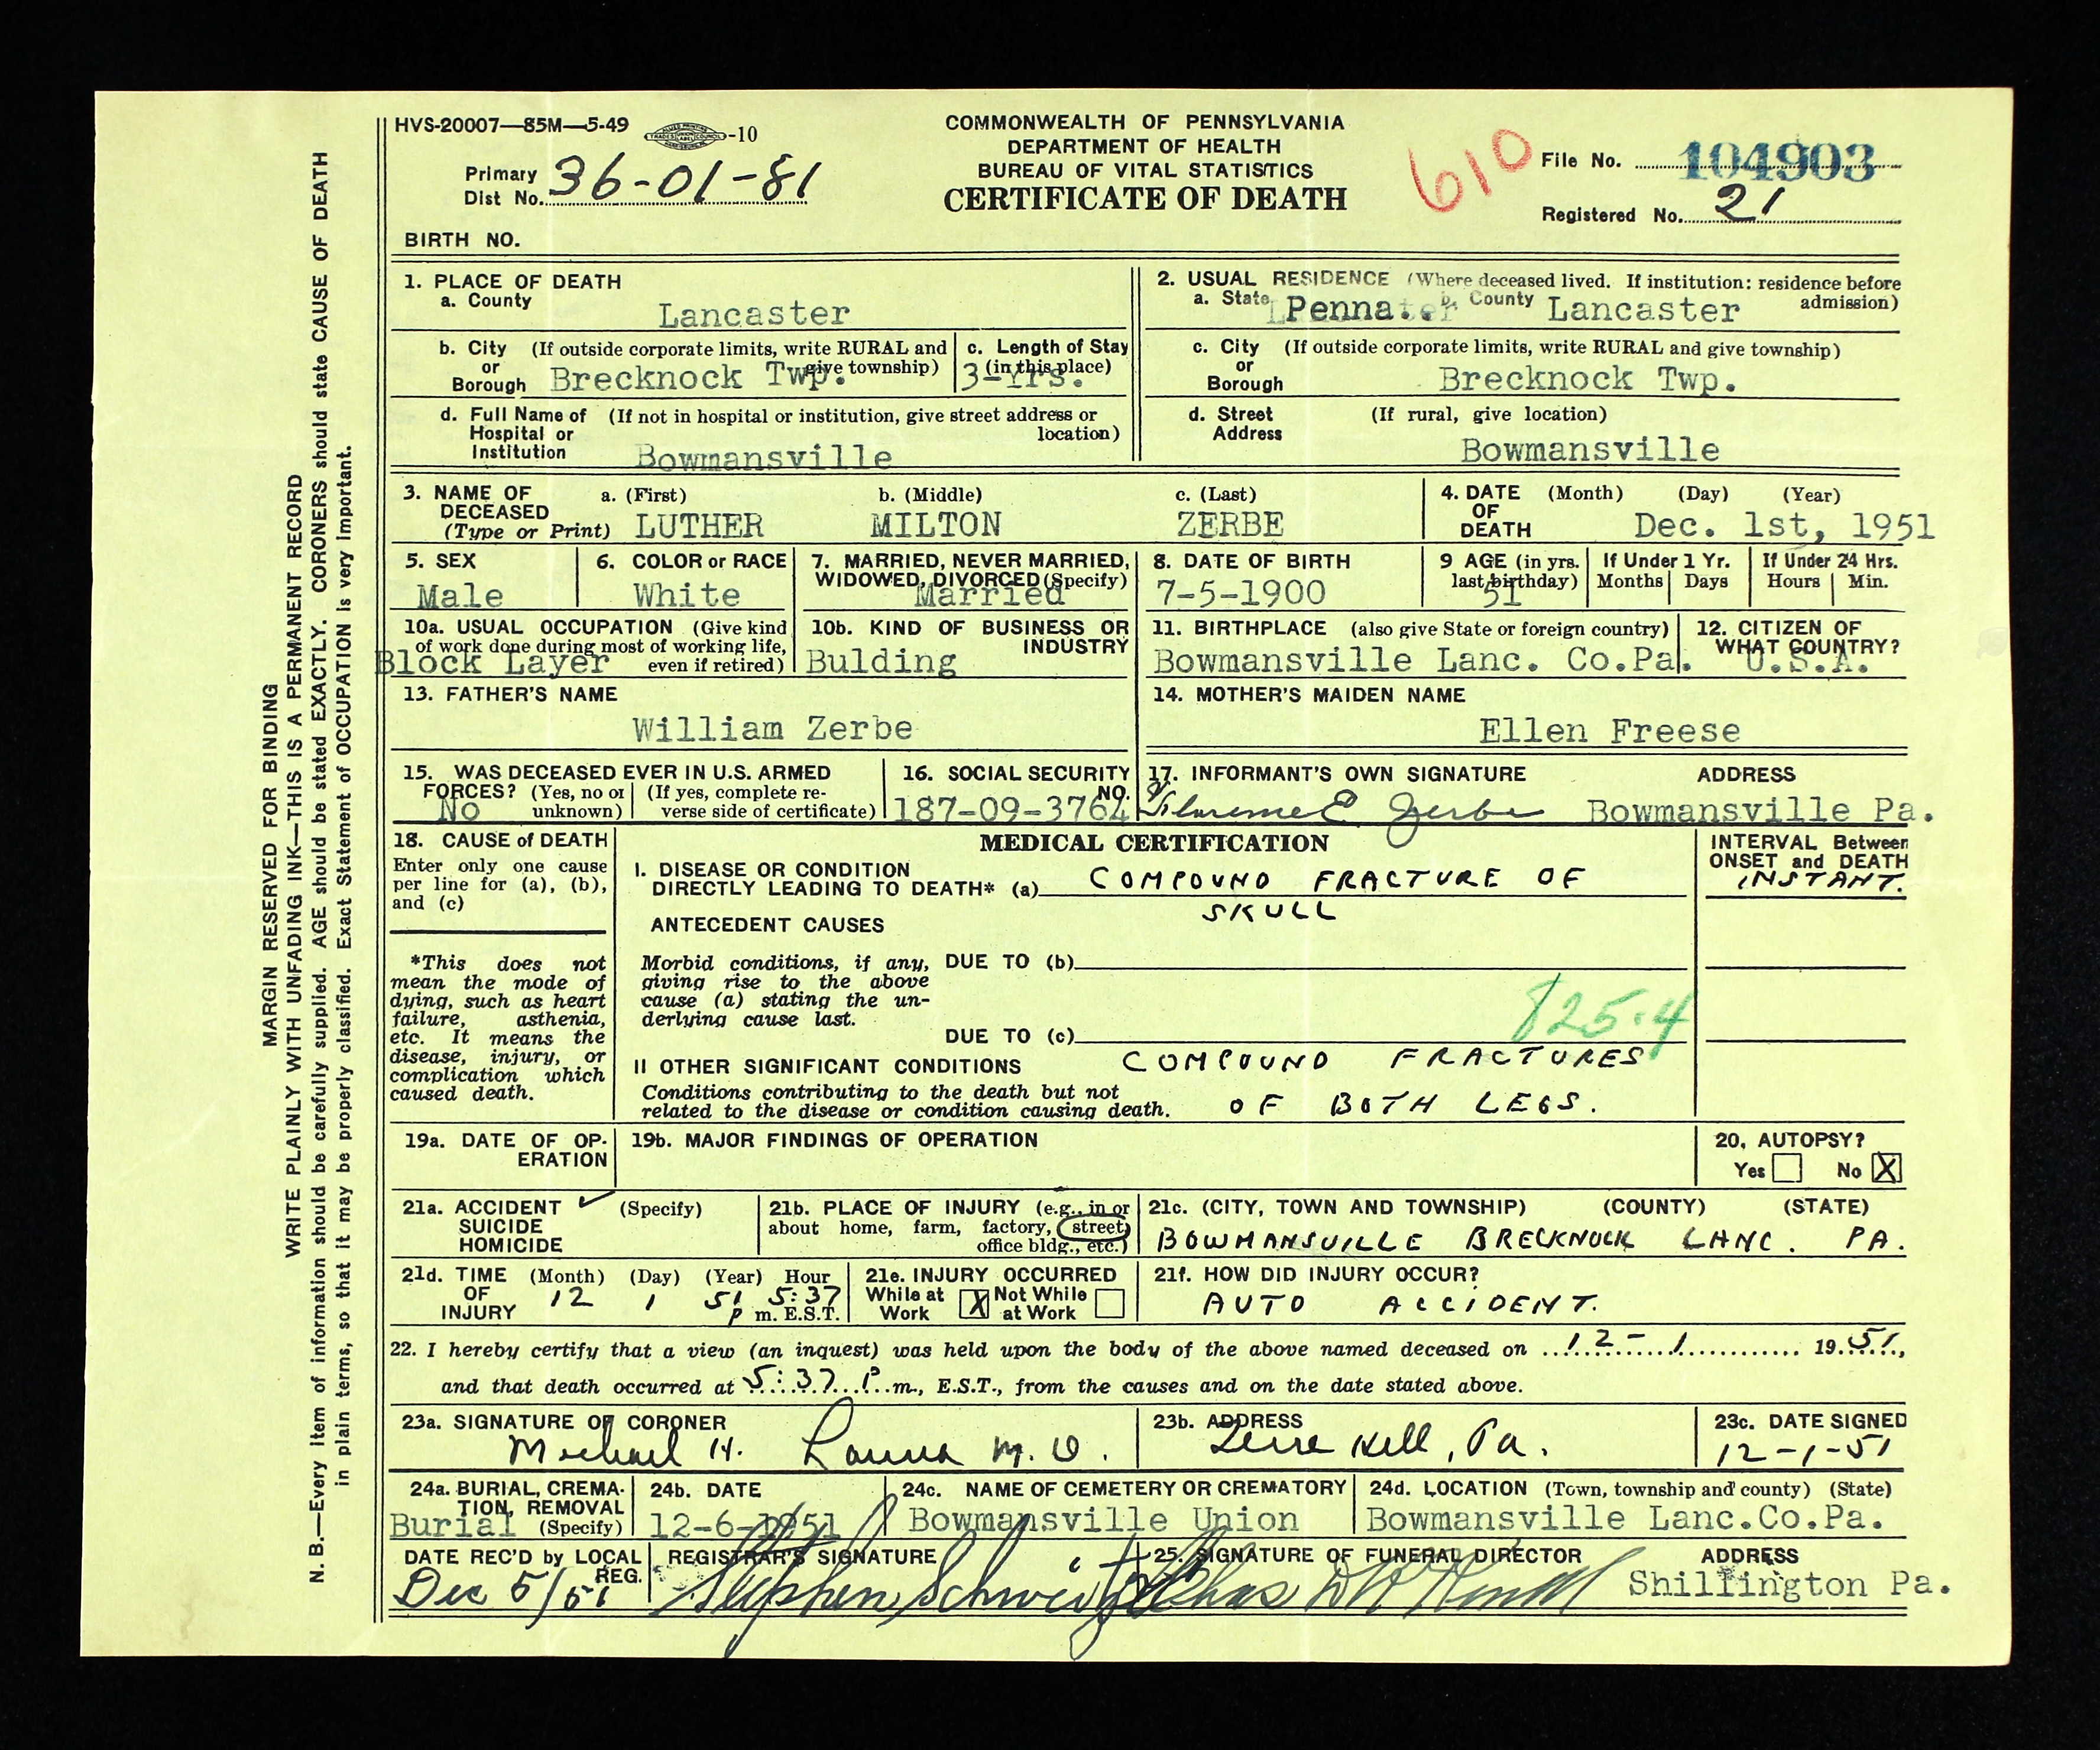 HVS-20007—85M—5-49 -10
COMMONWEALTH OF PENNSYLVANIA
DEPARTMENT OF HEALTH
BUREAU OF VITAL STATISTICS
CERTIFICATE OF DEATH
610
File No. 104903
Registered No. 21
Primary
Dist No. 36-01-81
BIRTH NO.
MARGIN RESERVED FOR BINDING
WRITE PLAINLY WITH UNFADING INK—THIS IS A PERMANENT RECORD
N. B.—Every item of information should be carefully supplied. AGE should be stated EXACTLY. CORONERS should state CAUSE OF DEATH
in plain terms, so that it may be properly classified. Exact Statement of OCCUPATION is very important.
1. PLACE OF DEATH
a. County
Lancaster
b. City (If outside corporate limits, write RURAL and
or give township)
Borough Brecknock Twp.
c. Length of Stay
(in this place)
3-Yrs.
d. Full Name of (If not in hospital or institution, give street address or
Hospital or location)
Institution Bowmansville
2. USUAL RESIDENCE (Where deceased lived. If institution: residence before
admission)
a. State Penna. b. County Lancaster
c. City (If outside corporate limits, write RURAL and give township)
or
Borough Brecknock Twp.
d. Street (If rural, give location)
Address Bowmansville
3. NAME OF a. (First) b. (Middle) c. (Last)
DECEASED
(Type or Print) LUTHER MILTON ZERBE
4. DATE (Month) (Day) (Year)
OF
DEATH Dec. 1st, 1951
5. SEX
Male
6. COLOR or RACE
White
7. MARRIED, NEVER MARRIED,
WIDOWED, DIVORCED (Specify)
Married
8. DATE OF BIRTH
7-5-1900
9 AGE (in yrs.
last birthday)
51
If Under 1 Yr.
Months Days
If Under 24 Hrs.
Hours Min.
10a. USUAL OCCUPATION (Give kind
of work done during most of working life,
even if retired)
Block Layer
10b. KIND OF BUSINESS OR
INDUSTRY
Bulding
11. BIRTHPLACE (also give State or foreign country)
Bowmansville Lanc. Co.Pa.
12. CITIZEN OF
WHAT COUNTRY?
U.S.A.
13. FATHER'S NAME
William Zerbe
14. MOTHER'S MAIDEN NAME
Ellen Freese
15. WAS DECEASED EVER IN U.S. ARMED
FORCES? (Yes, no or (If yes, complete re-
No unknown) verse side of certificate)
16. SOCIAL SECURITY
NO.
187-09-3764
17. INFORMANT'S OWN SIGNATURE ADDRESS
Florence E Zerbe Bowmansville Pa.
18. CAUSE of DEATH
Enter only one cause
per line for (a), (b),
and (c)
*This does not
mean the mode of
dying, such as heart
failure, asthenia,
etc. It means the
disease, injury, or
complication which
caused death.
MEDICAL CERTIFICATION
I. DISEASE OR CONDITION
DIRECTLY LEADING TO DEATH* (a) COMPOUND FRACTURE OF
SKULL
ANTECEDENT CAUSES
Morbid conditions, if any, DUE TO (b)
giving rise to the above
cause (a) stating the un-
derlying cause last.
825.4
DUE TO (c)
II OTHER SIGNIFICANT CONDITIONS COMPOUND FRACTURES
Conditions contributing to the death but not
related to the disease or condition causing death. OF BOTH LEGS.
INTERVAL Between
ONSET and DEATH
INSTANT.
19a. DATE OF OP-
ERATION
19b. MAJOR FINDINGS OF OPERATION
20. AUTOPSY?
Yes No X
21a. ACCIDENT ✓ (Specify)
SUICIDE
HOMICIDE
21b. PLACE OF INJURY (e.g., in or
about home, farm, factory, street,
office bldg., etc.)
21c. (CITY, TOWN AND TOWNSHIP) (COUNTY) (STATE)
BOWMANSVILLE BRECKNOCK LANC. PA.
21d. TIME (Month) (Day) (Year) Hour
OF 12 1 51 5:37
INJURY P m. E.S.T.
21e. INJURY OCCURRED
While at X Not While
Work at Work
21f. HOW DID INJURY OCCUR?
AUTO ACCIDENT.
22. I hereby certify that a view (an inquest) was held upon the body of the above named deceased on 12-1 1951,
and that death occurred at 5:37 P.m., E.S.T., from the causes and on the date stated above.
23a. SIGNATURE OF CORONER
Michael H. M.D.
23b. ADDRESS
Terre Hill, Pa.
23c. DATE SIGNED
12-1-51
24a. BURIAL, CREMA-
TION, REMOVAL
Burial (Specify)
24b. DATE
12-6-1951
24c. NAME OF CEMETERY OR CREMATORY
Bowmansville Union
24d. LOCATION (Town, township and county) (State)
Bowmansville Lanc.Co.Pa.
DATE REC'D by LOCAL
REG.
Dec 5/51
REGISTRAR'S SIGNATURE
Stephen Schweitzer
25. SIGNATURE OF FUNERAL DIRECTOR ADDRESS
Chas Shillington Pa.